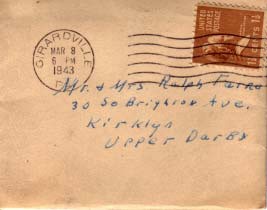 GIRARDVILLE
MAR 8
6 PM
1943
UNITED
STATES
POSTAGE
Mr. & Mrs Ralph
30 So Brighton Ave.
Kirklyn
Upper Darby